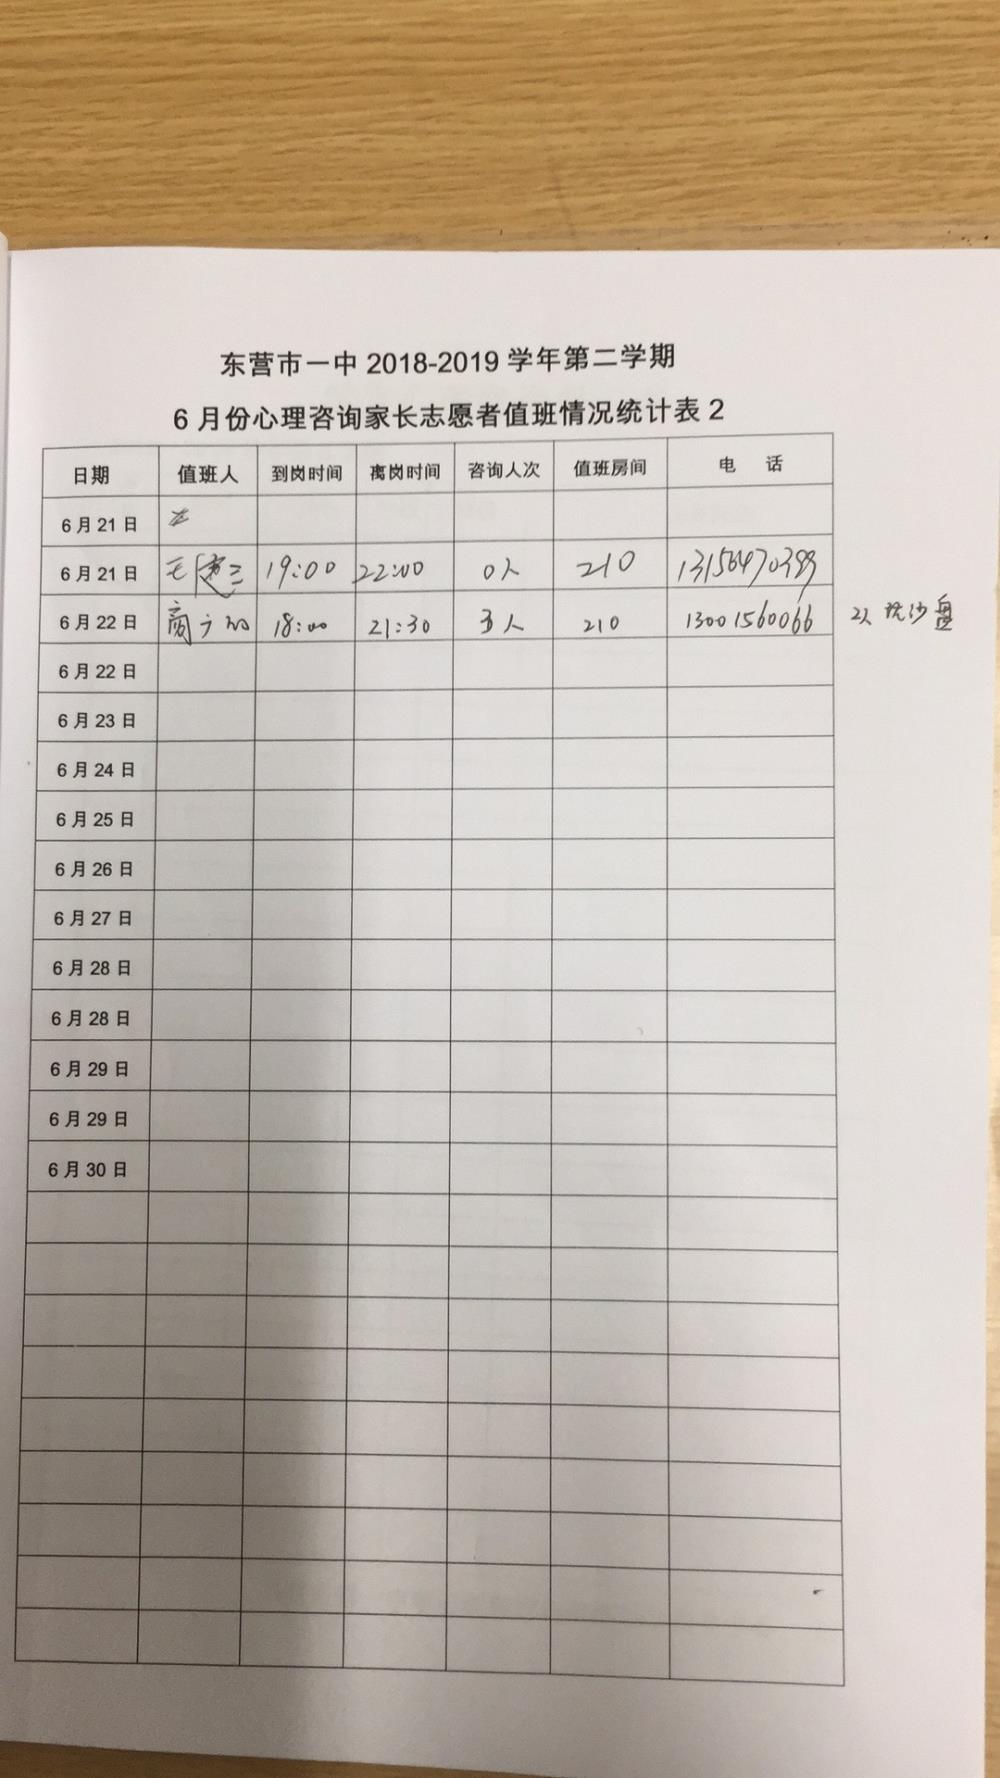 东营市一中 2018-2019 学年第二学期
6 月份心理咨询家长志愿者值班情况统计表 2
日期 值班人 到岗时间 离岗时间 咨询人次 值班房间 电 话
6 月 21 日
6 月 21 日 19:00 22:00 0人 210 13156470399
6 月 22 日 18:00 21:30 3人 210 13001560066 2人玩沙盘
6 月 22 日
6 月 23 日
6 月 24 日
6 月 25 日
6 月 26 日
6 月 27 日
6 月 28 日
6 月 28 日
6 月 29 日
6 月 29 日
6 月 30 日